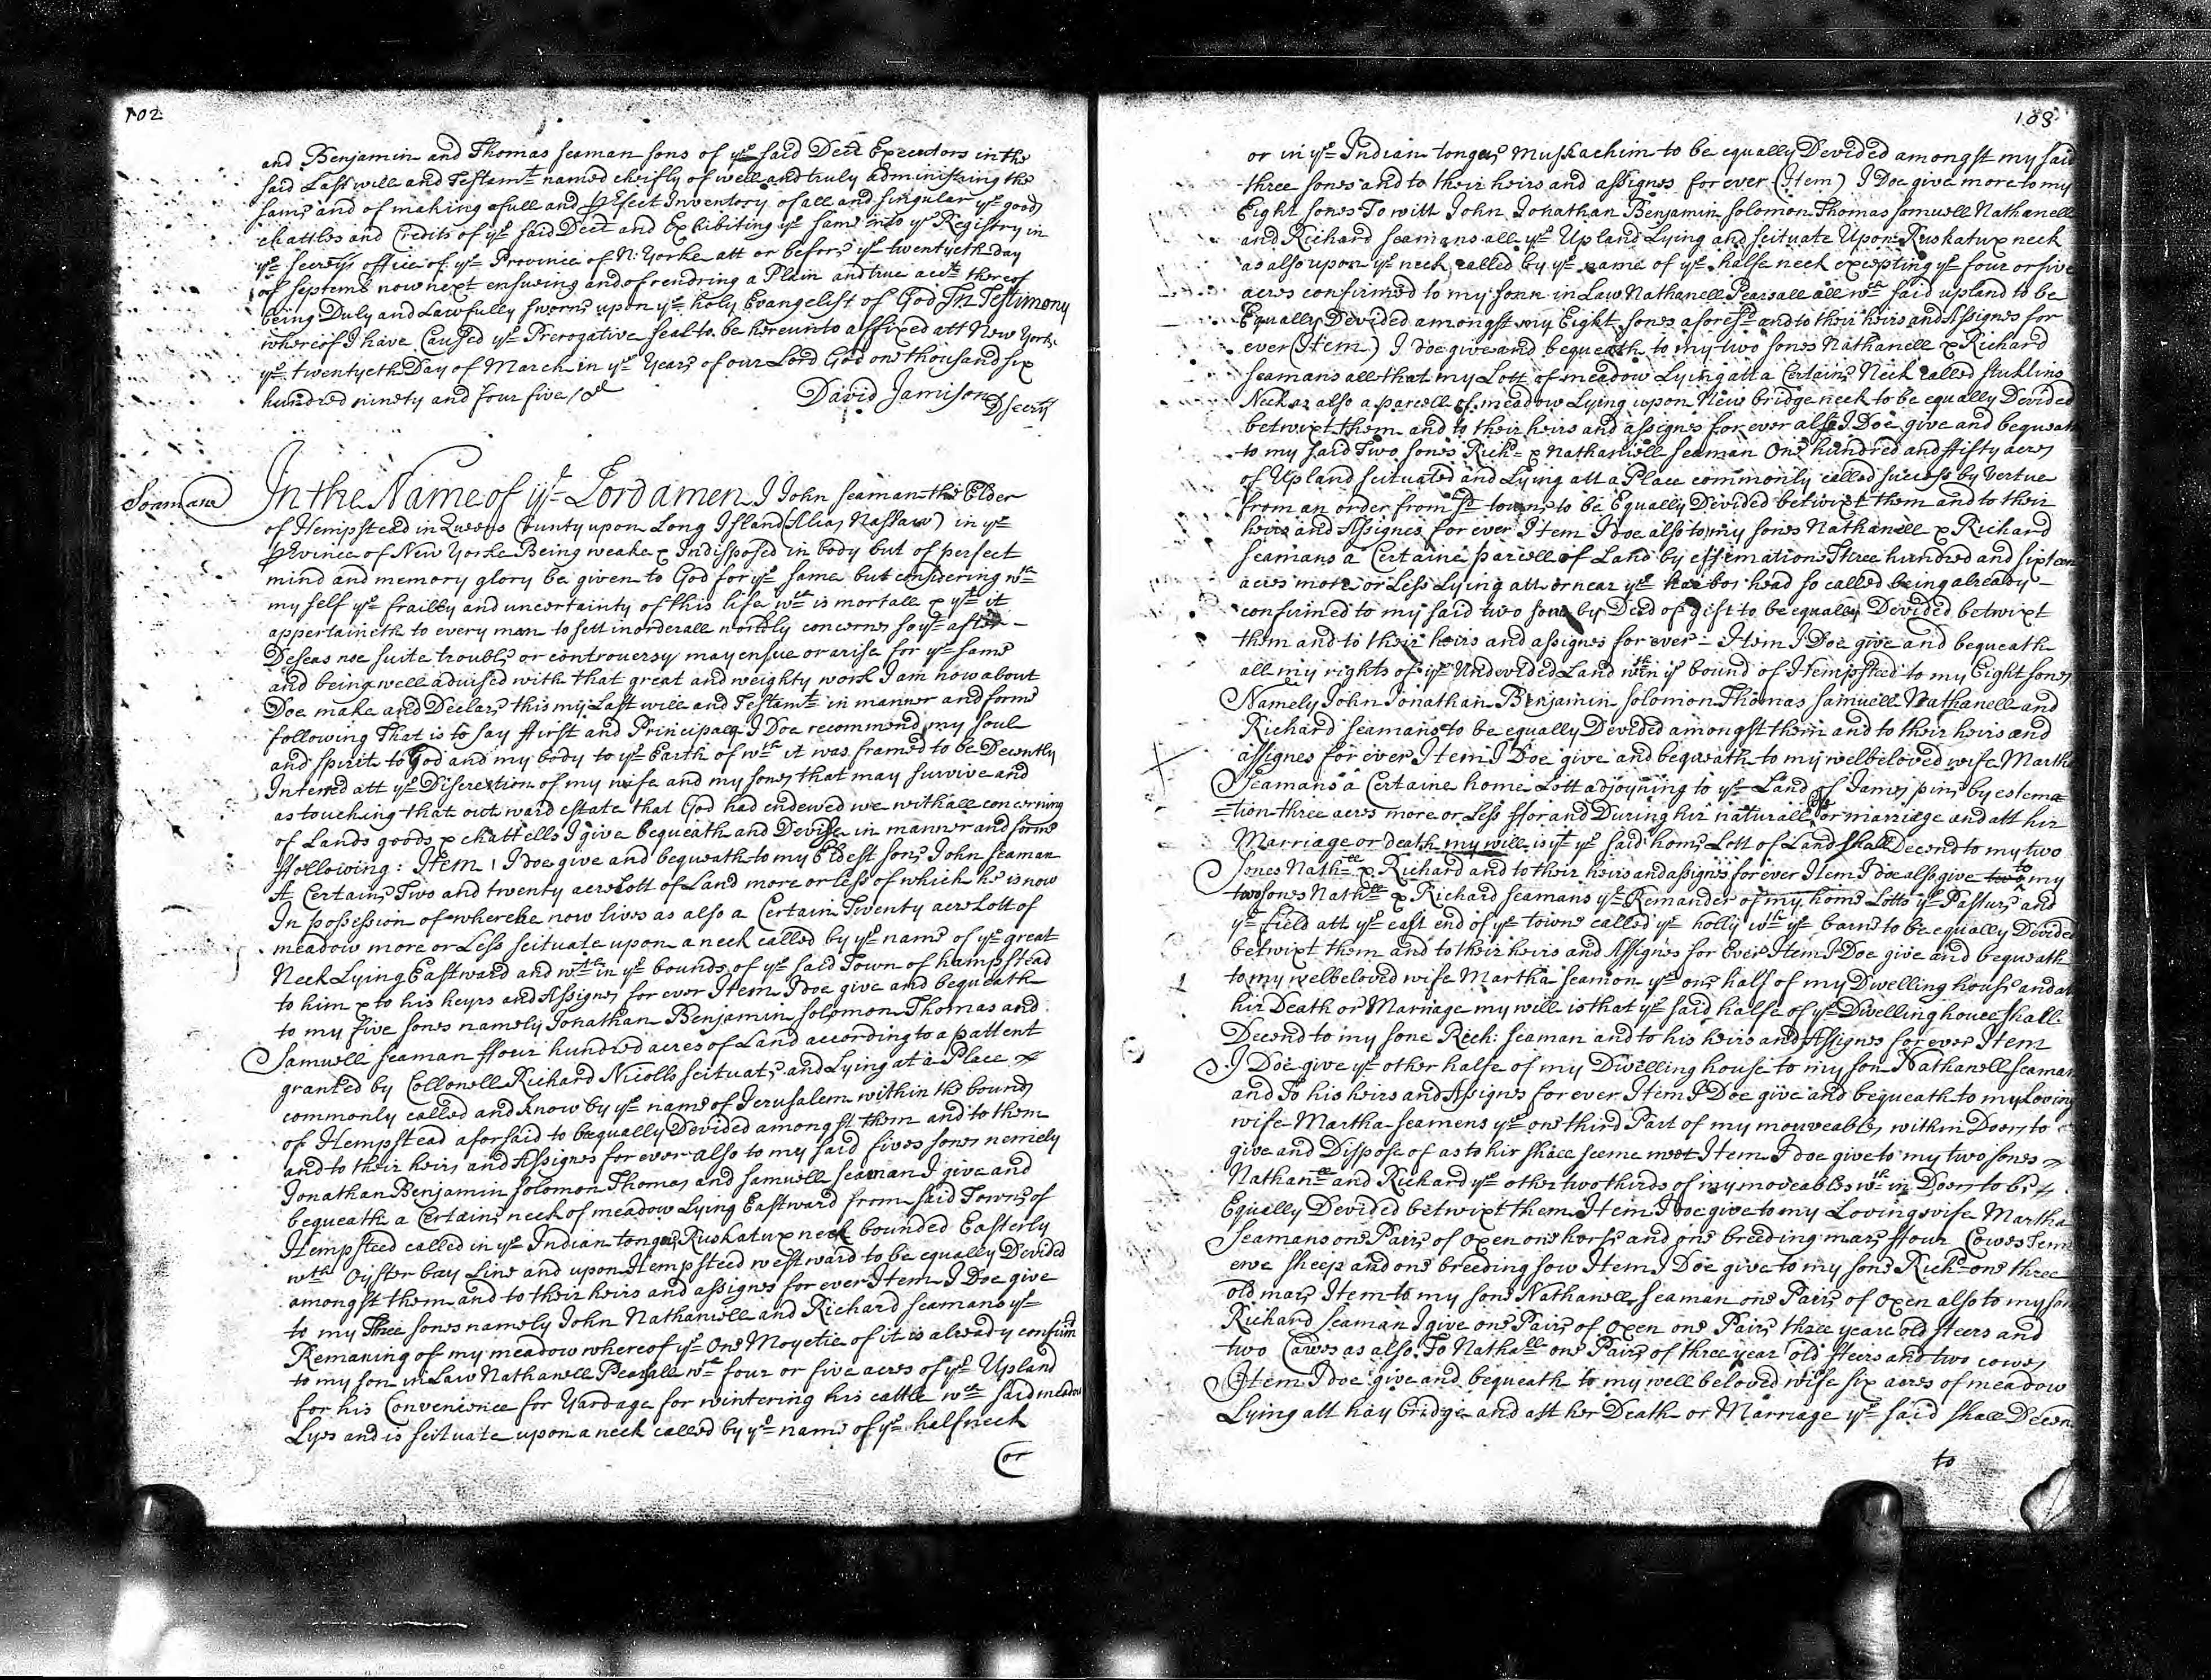 102
and Benjamin and Thomas seaman sons of ye said Decd Executors in the
said Last will and Testamt named cheifly of well and truly administring the
same and of making a full and Perfect Inventory of all and singular ye goods
chattles and Credits of ye said Decd and Exhibiting ye same into ye Registry in
ye secretys office of ye Province of N: Yorke att or before ye twentyeth Day
of Septemb now next ensueing and of rendring a Plain and true acct thereof
being Duly and Lawfully sworne upon ye holy Evangelist of God In Testimony
whereof I have Caused ye Prerogative seal to be hereunto affixed att New Yorke
ye twentyeth Day of March in ye Yeare of our Lord God one thousand six
hundred ninety and four five
David Jamison D secrty
Seaman
In the Name of ye Lord amen I John seaman the Elder
of Hempstead in Queens County upon Long Island (Alias Nassaw) in ye
Province of New Yorke Being weake & Indisposed in body but of perfect
mind and memory glory be given to God for ye same but considering wth
my self ye frailty and uncertainty of this life wch is mortall & yt it
appertaineth to every man to sett in order all worldly concernes so yt after
Deseas noe suite trouble or controuersy may ensue or arise for ye same
and being well aduised with that great and weighty work I am now about
Doe make and Declare this my Last will and Testamt in manner and forme
following That is to say ffirst and Principally I Doe recommend my soul
and spirit to God and my body to ye Earth of wch it was framed to be Decently
Interred att ye Discretion of my wife and my sones that may survive and
as touching that outward estate that God had endewed we withall concerning
of Lands goods & chattells I give bequeath and Devise in manner and forme
ffollowing: Item I doe give and bequeath to my Eldest sone John seaman
A Certaine Two and twenty acre Lott of Land more or less of which he is now
In possession of where he now lives as also a Certain Twenty acre Lott of
meadow more or Less scituate upon a neck called by ye name of ye great
Neck Lying Eastward and wthin ye bounds of ye said Town of hampstead
to him & to his heyrs and Assignes for ever Item I doe give and bequeath
to my five sones namely Jonathan Benjamin solomon Thomas and
Samuell seaman ffour hundred acres of Land according to a pattent
granted by Collonell Richard Nicolls scituate and Lying at a Place
commonly called and know by ye name of Jerusalem within the bounds
of Hempstead aforsaid to be equally Devided amongst them and to them
and to their heirs and Assignes for ever also to my said fives sones nemiely
Jonathan Benjamin solomon Thomas and samuell seaman I give and
bequeath a Certaine neck of meadow Lying Eastward from said Towne of
Hempsteed called in ye Indian tongue Ruskatux neck bounded Easterly
wth Oyster bay Line and upon Hempsteed westward to be equally Devided
amongst them and to their heirs and assignes for ever Item I Doe give
to my Three sones namely John Nathaniell and Richard seamans ye
Remaning of my meadow whereof ye One Moyetie of it is already confirmd
to my son in Law Nathanell Pearsall wth four or five acres of ye Upland
for his Convenience for Yardage for wintering his cattle wch said meadow
Lyes and is scituate upon a neck called by ye name of ye half neck
or
103
or in ye Indian tongue Muskachim to be equally Devided amongst my said
three sones and to their heirs and assignes for ever (Item) I Doe give more to my
Eight sones To witt John Jonathan Benjamin solomon Thomas somuell Nathanell
and Richard seamans all ye Upland Lying and scituate Upon Ruskatux neck
as also upon ye neck called by ye name of ye halfe neck excepting ye four or five
acres confirmed to my sonn in Law Nathanell Pearsall all wch said upland to be
Equally Devided amongst my Eight sones aforesd and to their heirs and Assignes for
ever (Item) I doe give and bequeath to my two sones Nathanell & Richard
seamans all that my Lott of meadow Lying att a Certaine Neck called sticklins
Neck as also a parcell of meadow Lying upon New bridge neck to be equally Devided
betwixt them and to their heirs and assignes for ever also I Doe give and bequeath
to my said Two sones Richd & Nathaniell seaman One hundred and ffifty acres
of Upland scituated and Lying att a Place commonly called success by vertue
from an order from sd towne to be Equally Devided betwixt them and to their
heirs and Assignes for ever Item I doe also to my sones Nathanell & Richard
seamans a Certaine parcell of Land by estimatione Three hundred and sixteen
acres more or Less Lying att or near ye harbor head so called being already
confirmed to my said two sons by Deed of gift to be equally Devided betwixt
them and to their heirs and assignes for ever Item I Doe give and bequeath
all my rights of ye Undevided Land wthin ye bound of Hempsteed to my Eight sones
Namely John Jonathan Benjamin solomon Thomas Samuell Nathanell and
Richard seamans to be equally Devided amongst them and to their heirs and
assignes for ever Item I Doe give and bequeath to my welbeloved wife Martha
Seamans a Certaine home Lott adjoyning to ye Land of James pine by estema
=tion three acres more or Less ffor and During hir naturall life or marriage and att hir
Marriage or death my will is yt ye said home Lott of Land shall Decend to my two
Sones Nathll & Richard and to their heirs and assignes for ever Item I doe also give two to my
two sones Nathll & Richard seamans ye Remander of my home Lotts ye Pasture and
ye field att ye east end of ye towne called ye holly wth ye barne to be equally Devided
betwixt them and to their heirs and Assignes for Ever Item I Doe give and bequeath
to my welbeloved wife Martha seamon ye one half of my Dwelling house and att
hir Death or Marriage my will is that ye said halfe of ye Dwelling houce shall
Decend to my sone Rich: seaman and to his heirs and Assignes for ever Item
I Doe give ye other halfe of my Dwelling house to my son Nathanell seaman
and To his heirs and Assignes for ever Item I Doe give and bequeath to my Loving
wife Martha seamens ye one third Part of my mouveables within Doors to
give and Dispose of as to hir shall seeme meet Item I doe give to my two sones
Nathanll and Richard ye other two thirds of my moveables wth in Doors to be
Equally Devided betwixt them Item I Doe give to my Loving wife Martha
Seamans one Paire of oxen one horse and one breeding mare ffour Cowes Tenn
ewe sheep and one breeding sow Item I Doe give to my sone Richd one three
old mare Item to my sone Nathanell seaman one Paire of oxen also to my son
Richard seaman I give one Paire of oxen one Paire three yeare old steers and
two Cowes as also To Nathall one Paire of three year old steirs and two cowes
Item I doe give and bequeath to my well beloved wife six acres of meadow
Lying att hay bridge and att her Death or Marriage ye said shall Decen
to